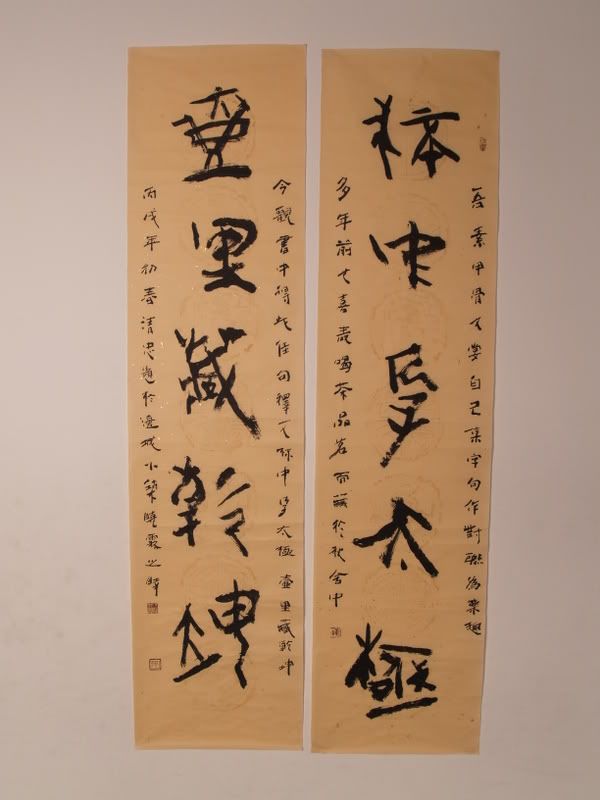 吾素甲骨文要自己集字句作對聯為樂趣
中太極
多年前喜喝茶品茗而藏於秋舍中
今觀書中得此佳句釋文中太極壺里藏乾坤
壺里藏乾坤
丙戌年初春清忠題於邊城小築曉之時